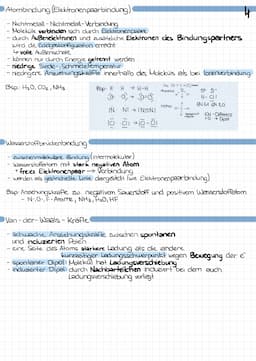 Atombindung (Elektronenpaarbindung)
4
- Nichtmetall - Nichtmetall-Verbindung
- Moleküle verbinden sich durch Elektronenpaare
- durch Außenelektronen und zusätzliche Elektronen des Bindungspartners
wird die Edelgaskonfiguration erreicht
↳ volle Außenschale
- können nur durch Energie getrennt werden
- niedrige Siede-, Schmelztemperatur
- niedrigere Anziehungskräfte innerhalb des Moleküls als bei Ionenverbindung
Bsp.: H₂O, CO₂, NH₃
Bsp.: H
H - H
Wasserstoffbrückenbindung
- zwischenmolekulare Bindung (intermolekular)
- Wasserstoffatom mit stark negativen Atom
• freies Elektronenpaar → Verbindung
- werden als gestrichelte Linie dargestellt (wie Elektronenpaarbindung)
Bsp: Anziehungskräfte zw. negativem Sauerstoff und positivem Wasserstoffatom
- N-, O-, F- Atome, NH₃, H₂O, HF
Van - der - Waals - Kräfte
- schwache Anziehungskräfte zwischen spontanen
und induzierten Polen
- eine Seite des Atoms stärkere Ladung als die andere
kurzzeitiger Ladungsschwerpunkt wegen Bewegung der e⁻
- spontaner Dipol: Molekül hat Ladungsverschiebung
- induzierter Dipol: durch Nachbarteilchen induziert bei dem auch
Ladungsverschiebung vorliegt